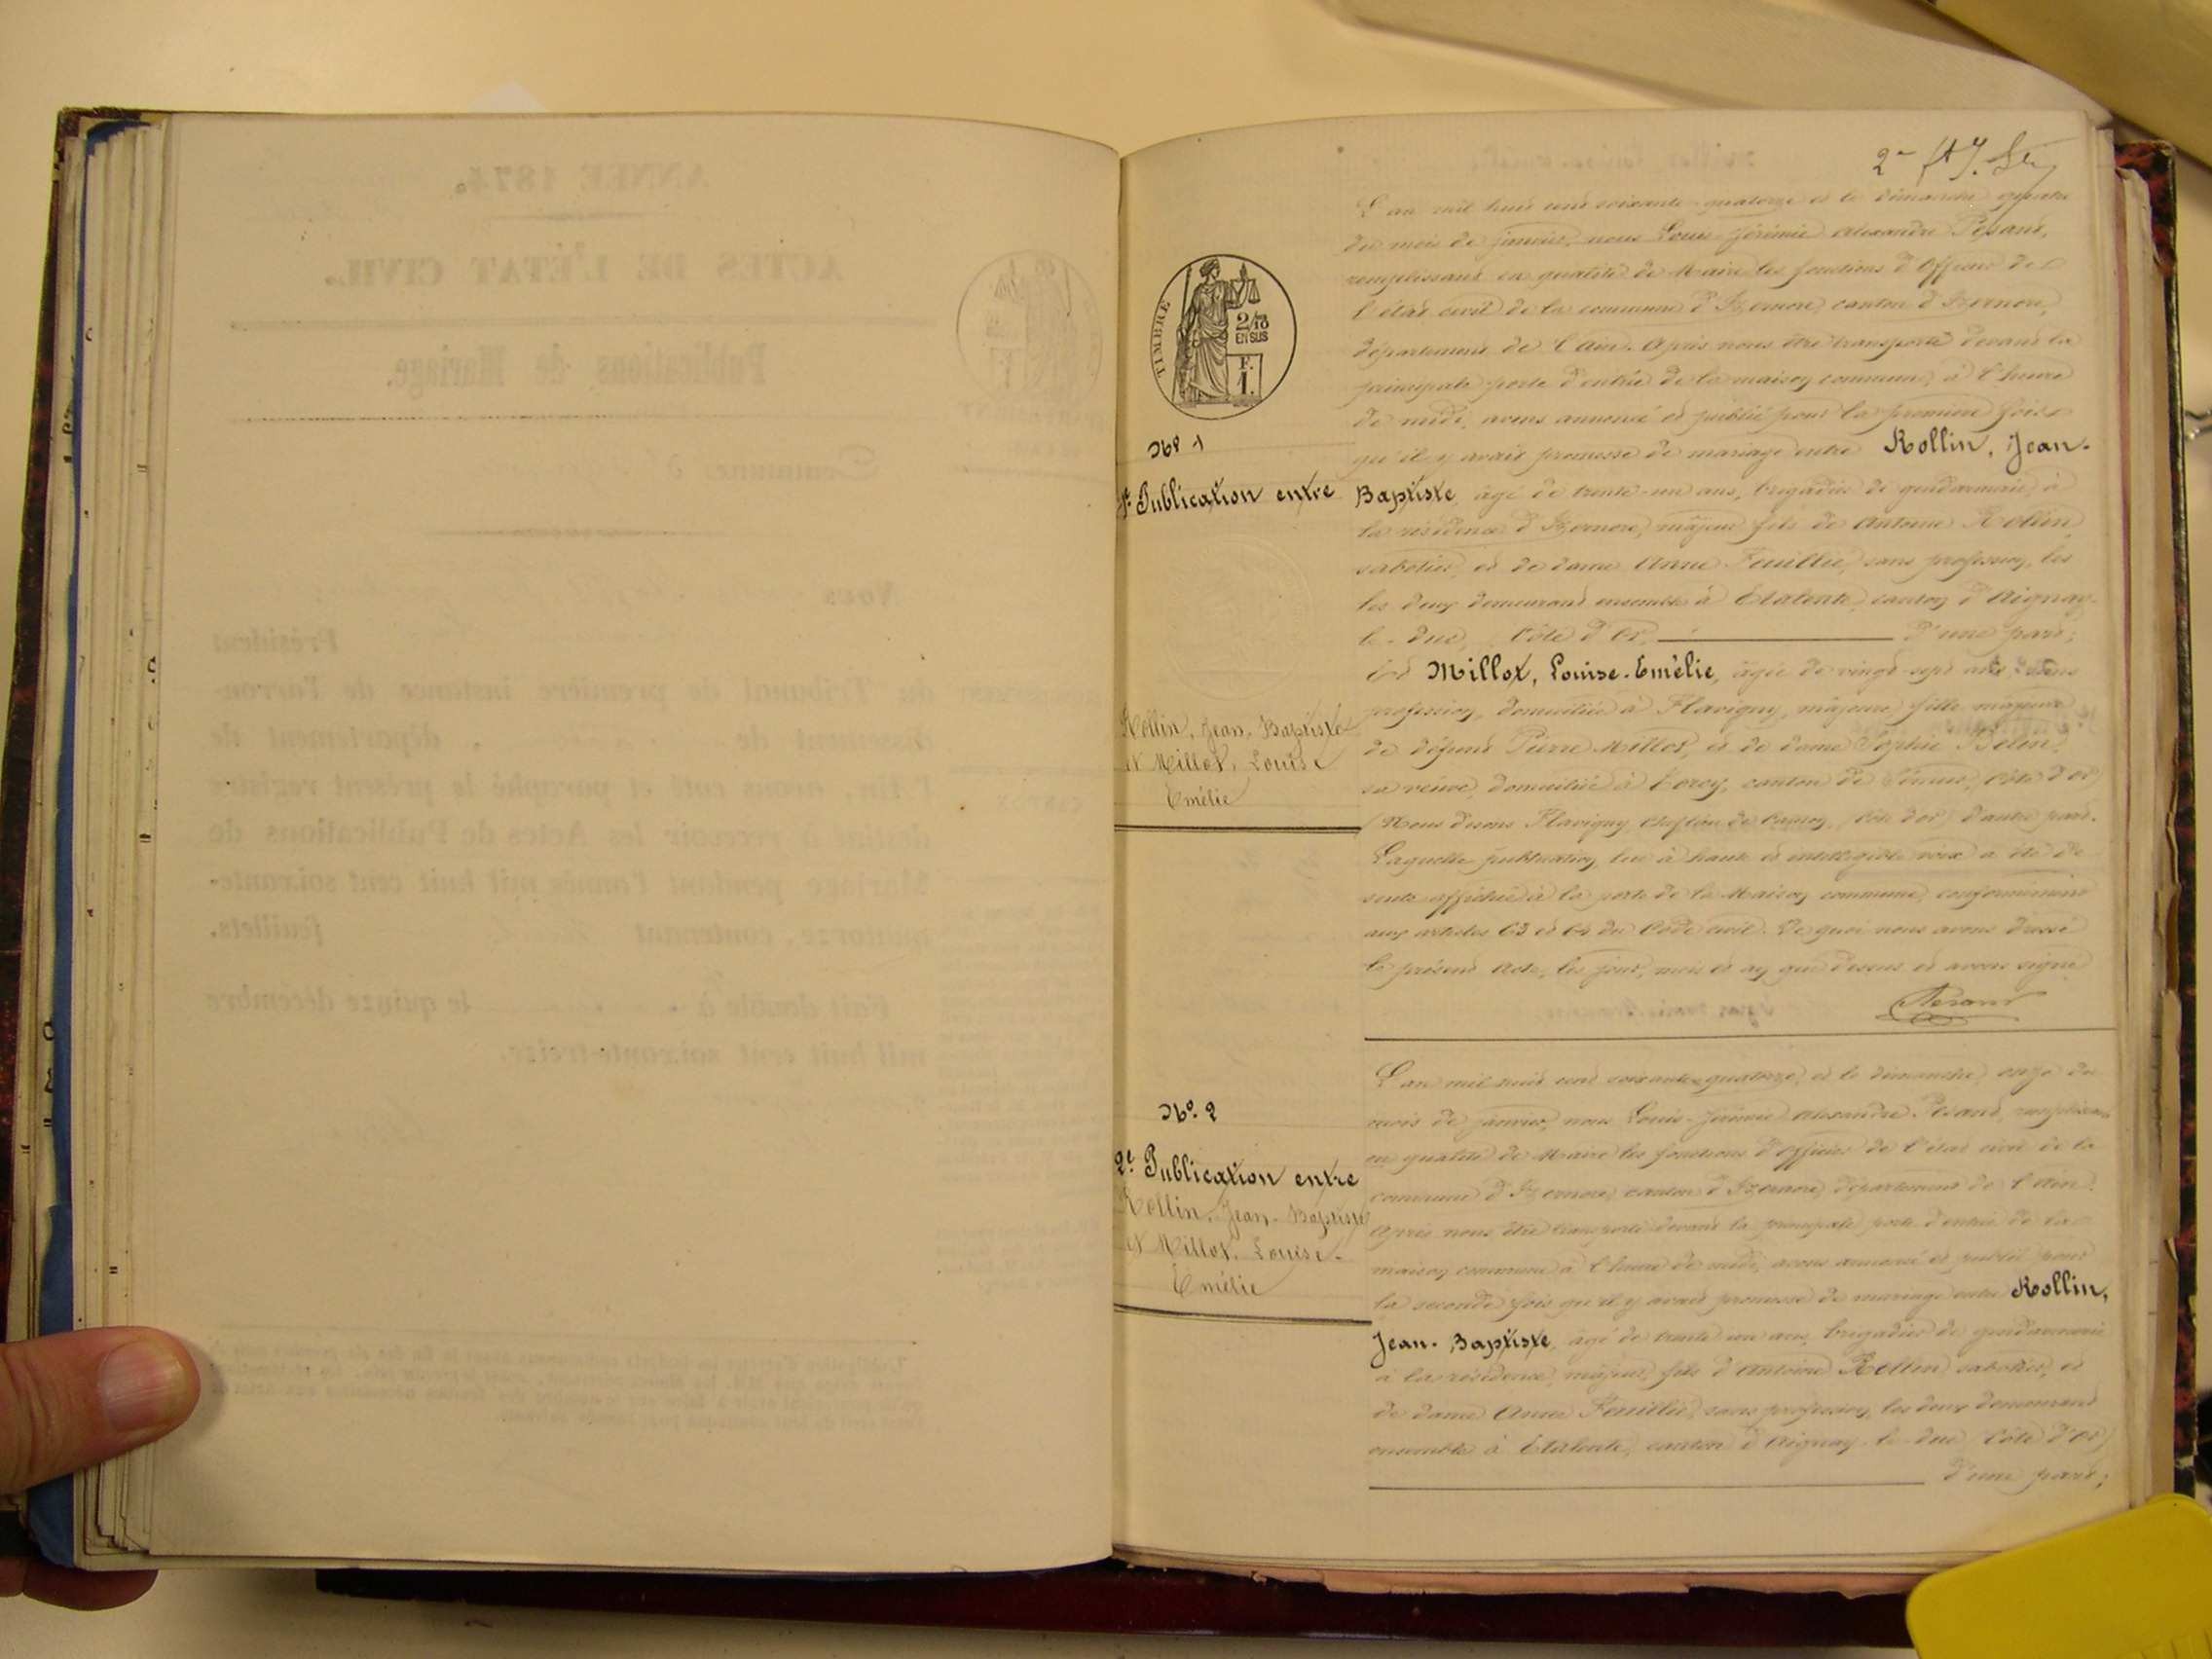 TIMBRE
2/10
EN SUS
F.
1.
No 1
1re Publication entre
Rollin, Jean-Baptiste
et Millot, Louise
Emélie
L'an mil huit cent soixante-quatorze et le dimanche quatre
du mois de janvier, nous Louis Jérémie Alexandre Pesant,
remplissant en qualité de Maire les fonctions d'Officier de
l'état civil de la commune d'Izernore, canton d'Izernore,
département de l'Ain. Après nous être transporté devant la
principale porte d'entrée de la maison commune, à l'heure
de midi, avons annoncé et publié pour la première fois
qu'il y avait promesse de mariage entre Rollin, Jean-
Baptiste, âgé de trente-un ans, brigadier de gendarmerie, à
la résidence d'Izernore, majeur fils de Antoine Rollin,
sabotier, et de dame Anne Feuillié, sans profession, les
les deux demeurant ensemble à Etalente, canton d'Aignay-
le-Duc, Côte d'Or, d'une part;
Et Millot, Louise-Emélie, âgée de vingt-sept ans, sans
profession, domiciliée à Flavigny, majeure fille majeure
de défunt Pierre Millot, et de dame Sophie Belin,
sa veuve, domiciliée à Corcy, canton de (Côte d'Or)
(Nous disons Flavigny Chef lieu de Canton, Côte d'or) d'autre part.
Laquelle publication, lue à haute et intelligible voix a été de
suite affichée à la porte de la Maison commune, conformément
aux articles 63 et 64 du Code civil. De quoi nous avons dressé
le présent Acte, les jour, mois et an que dessus et avons signé
Pesant
No. 2
2e Publication entre
Rollin, Jean-Baptiste
et Millot, Louise-
Emélie
L'an mil huit cent soixante-quatorze, et le dimanche, onze du
mois de janvier, nous Louis-Jérémie Alexandre Pesant, remplissant
en qualité de Maire les fonctions d'officier de l'état civil de la
commune d'Izernore, canton d'Izernore, département de l'Ain.
Après nous être transporté devant la principale porte d'entrée de la
maison commune à l'heure de midi, avons annoncé et publié pour
la seconde fois qu'il y avait promesse de mariage entre Rollin,
Jean-Baptiste, âgé de trente un ans, brigadier de gendarmerie
à la résidence, majeur, fils d'Antoine Rollin sabotier, et
de dame Anne Feuillié, sans profession, les deux demeurant
ensemble à Etalente, canton d'Aignay-le-Duc (Côte d'Or)
d'une part;